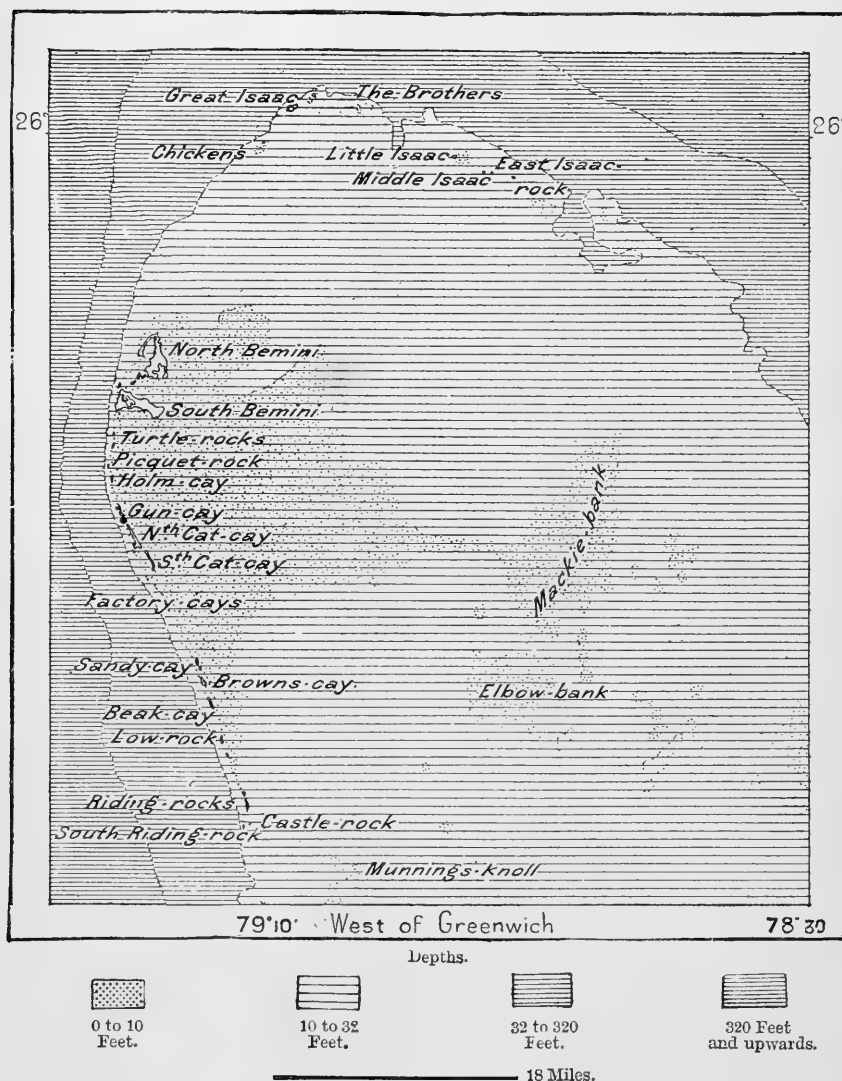 Great-Isaac
The-Brothers
26°
26°
Chickens
Little-Isaac
East-Isaac-
Middle-Isaac
rock
North-Bemini
South-Bemini
Turtle-rocks
Picquet-rock
Holm-cay
Gun-cay
Nth Cat-cay
Sth Cat-cay
Mackie-bank
Factory-cays
Sandy-cay
Browns-cay.
Elbow-bank
Beak-cay
Low-rock
Riding-rocks
Castle-rock
South-Riding-rock
Munnings-knoll
79°10' West of Greenwich 78°30
Depths.
0 to 10
Feet.
10 to 32
Feet.
32 to 320
Feet.
320 Feet
and upwards.
18 Miles.